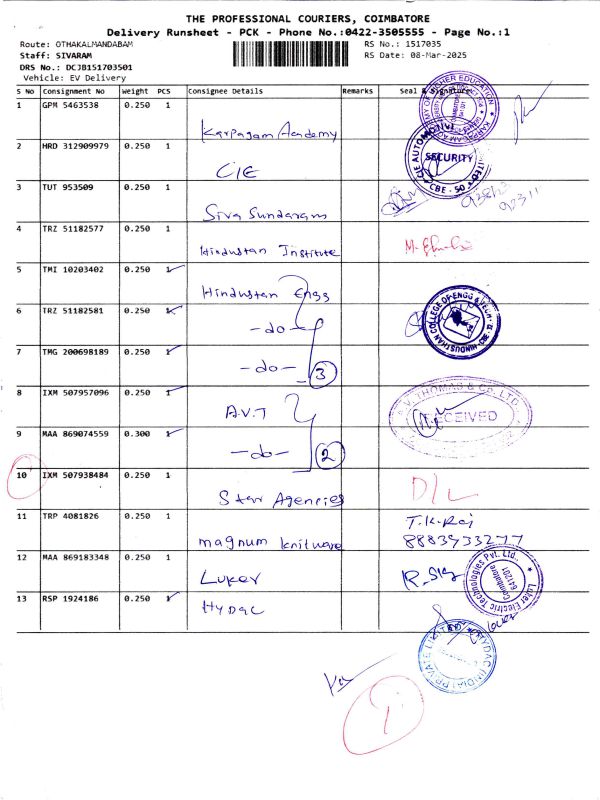 THE PROFESSIONAL COURIERS, COIMBATORE
Delivery Runsheet - PCK - Phone No.:0422-3505555 - Page No.:1
Route: OTHAKALMANDABAM RS No.: 1517035
Staff: SIVARAM RS Date: 08-Mar-2025
DRS No.: DCJB151703501
Vehicle: EV Delivery
S No Consignment No Weight PCS Consignee Details Remarks Seal & Signature
1 GPM 5463538 0.250 1 Karpagam Academy
2 HRD 312909979 0.250 1 CIE
SECURITY
CBE - 50
3 TUT 953509 0.250 1 Siva Sundaram
4 TRZ 51182577 0.250 1 Hindustan Institute
5 TMI 10203402 0.250 1 Hindustan Engg
6 TRZ 51182581 0.250 1 -do-
7 TMG 200698189 0.250 1 -do- 3
8 IXM 507957096 0.250 1 A.V.T
A.V. THOMAS & CO. LTD.
RECEIVED
9 MAA 869074559 0.300 1 -do- 2
10 IXM 507938484 0.250 1 Star Agencies D/L
11 TRP 4081826 0.250 1 magnum knitware T.K.Raj
8883933277
12 MAA 869183348 0.250 1 Luker
Luker Electric Technologies Pvt. Ltd.
Coimbatore
641201
13 RSP 1924186 0.250 1 HYDAC
HYDAC (INDIA) PRIVATE LIMITED